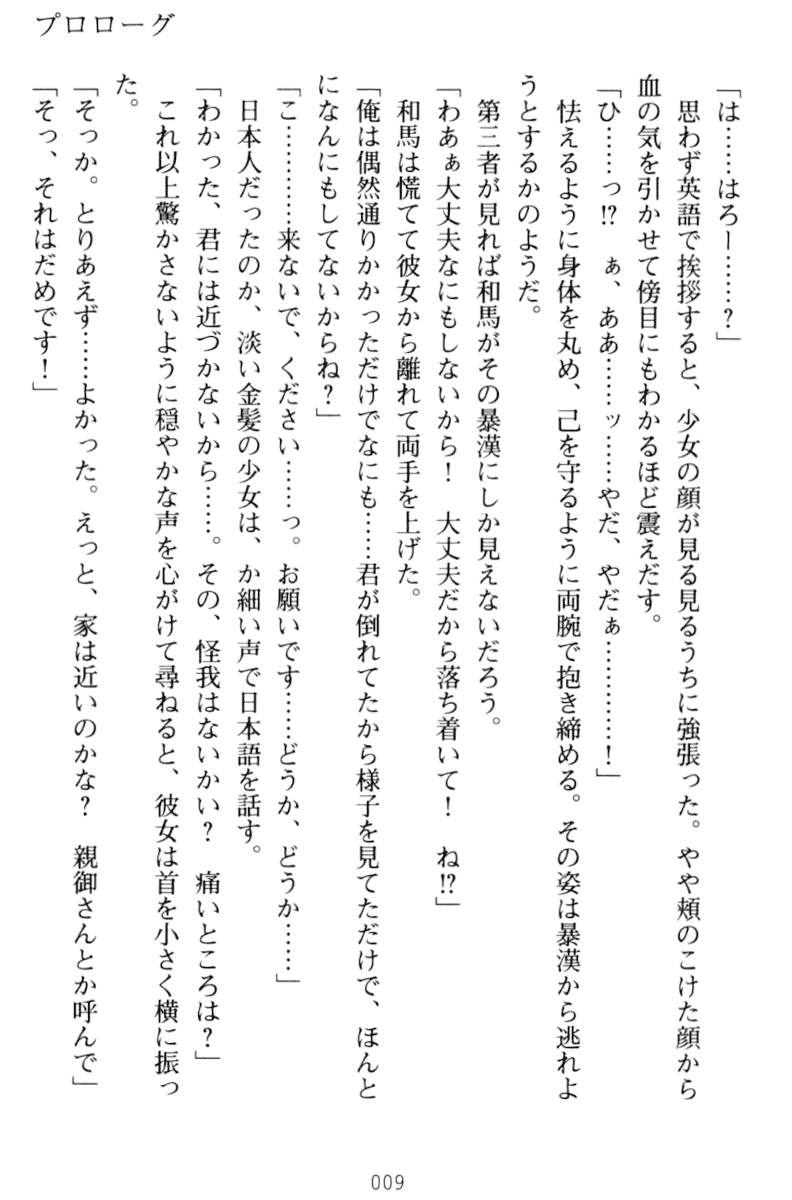 プロローグ
「は……はろー……？」
　思わず英語で挨拶すると、少女の顔が見る見るうちに強張った。やや頬のこけた顔から
血の気を引かせて傍目にもわかるほど震えだす。
「ひ……っ!?　ぁ、ああ……ッ……やだ、やだぁ…………！」
　怯えるように身体を丸め、己を守るように両腕で抱き締める。その姿は暴漢から逃れよ
うとするかのようだ。
　第三者が見れば和馬がその暴漢にしか見えないだろう。
「わあぁ大丈夫なにもしないから！　大丈夫だから落ち着いて！　ね!?」
　和馬は慌てて彼女から離れて両手を上げた。
「俺は偶然通りかかっただけでなにも……君が倒れてたから様子を見てただけで、ほんと
になんにもしてないからね？」
「こ…………来ないで、ください……っ。お願いです……どうか、どうか……」
　日本人だったのか、淡い金髪の少女は、か細い声で日本語を話す。
「わかった、君には近づかないから……。その、怪我はないかい？　痛いところは？」
　これ以上驚かさないように穏やかな声を心がけて尋ねると、彼女は首を小さく横に振っ
た。
「そっか。とりあえず……よかった。えっと、家は近いのかな？　親御さんとか呼んで」
「そっ、それはだめです！」
009